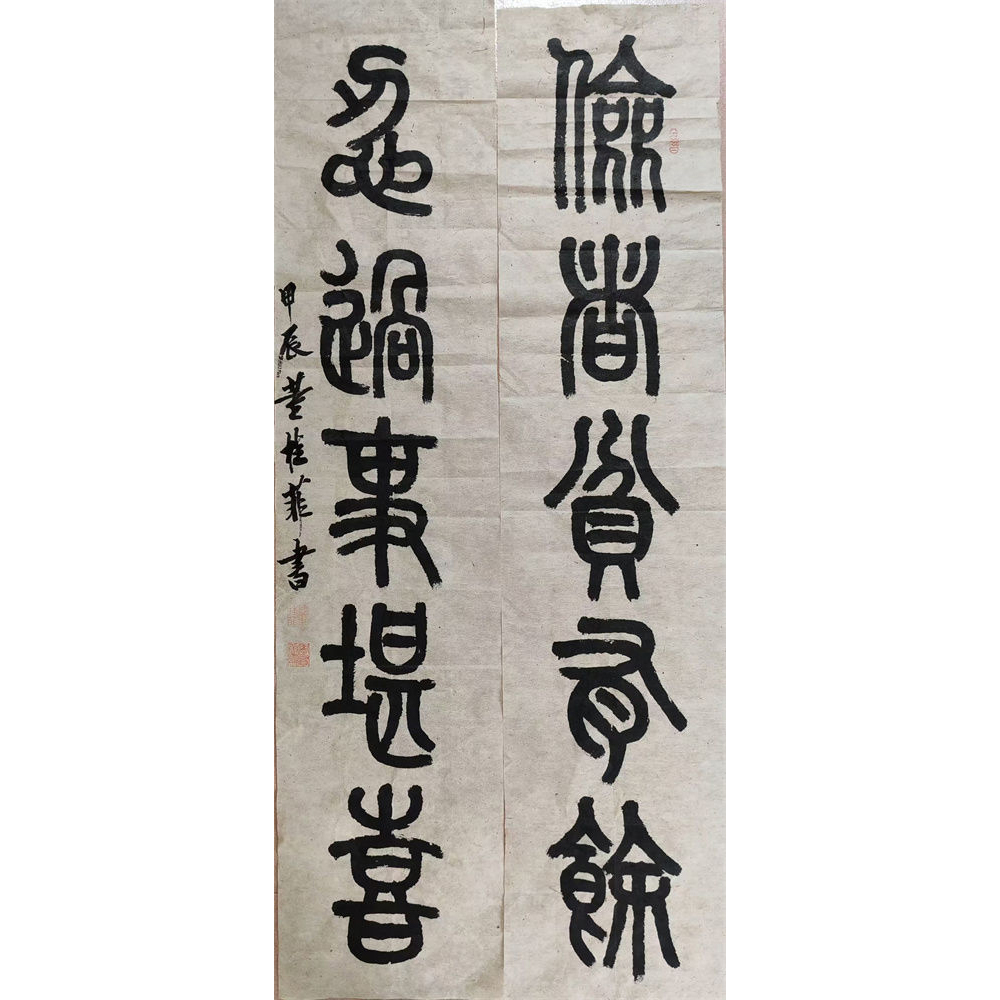 儉者貧有餘
忍過事堪喜
甲辰桂菲書